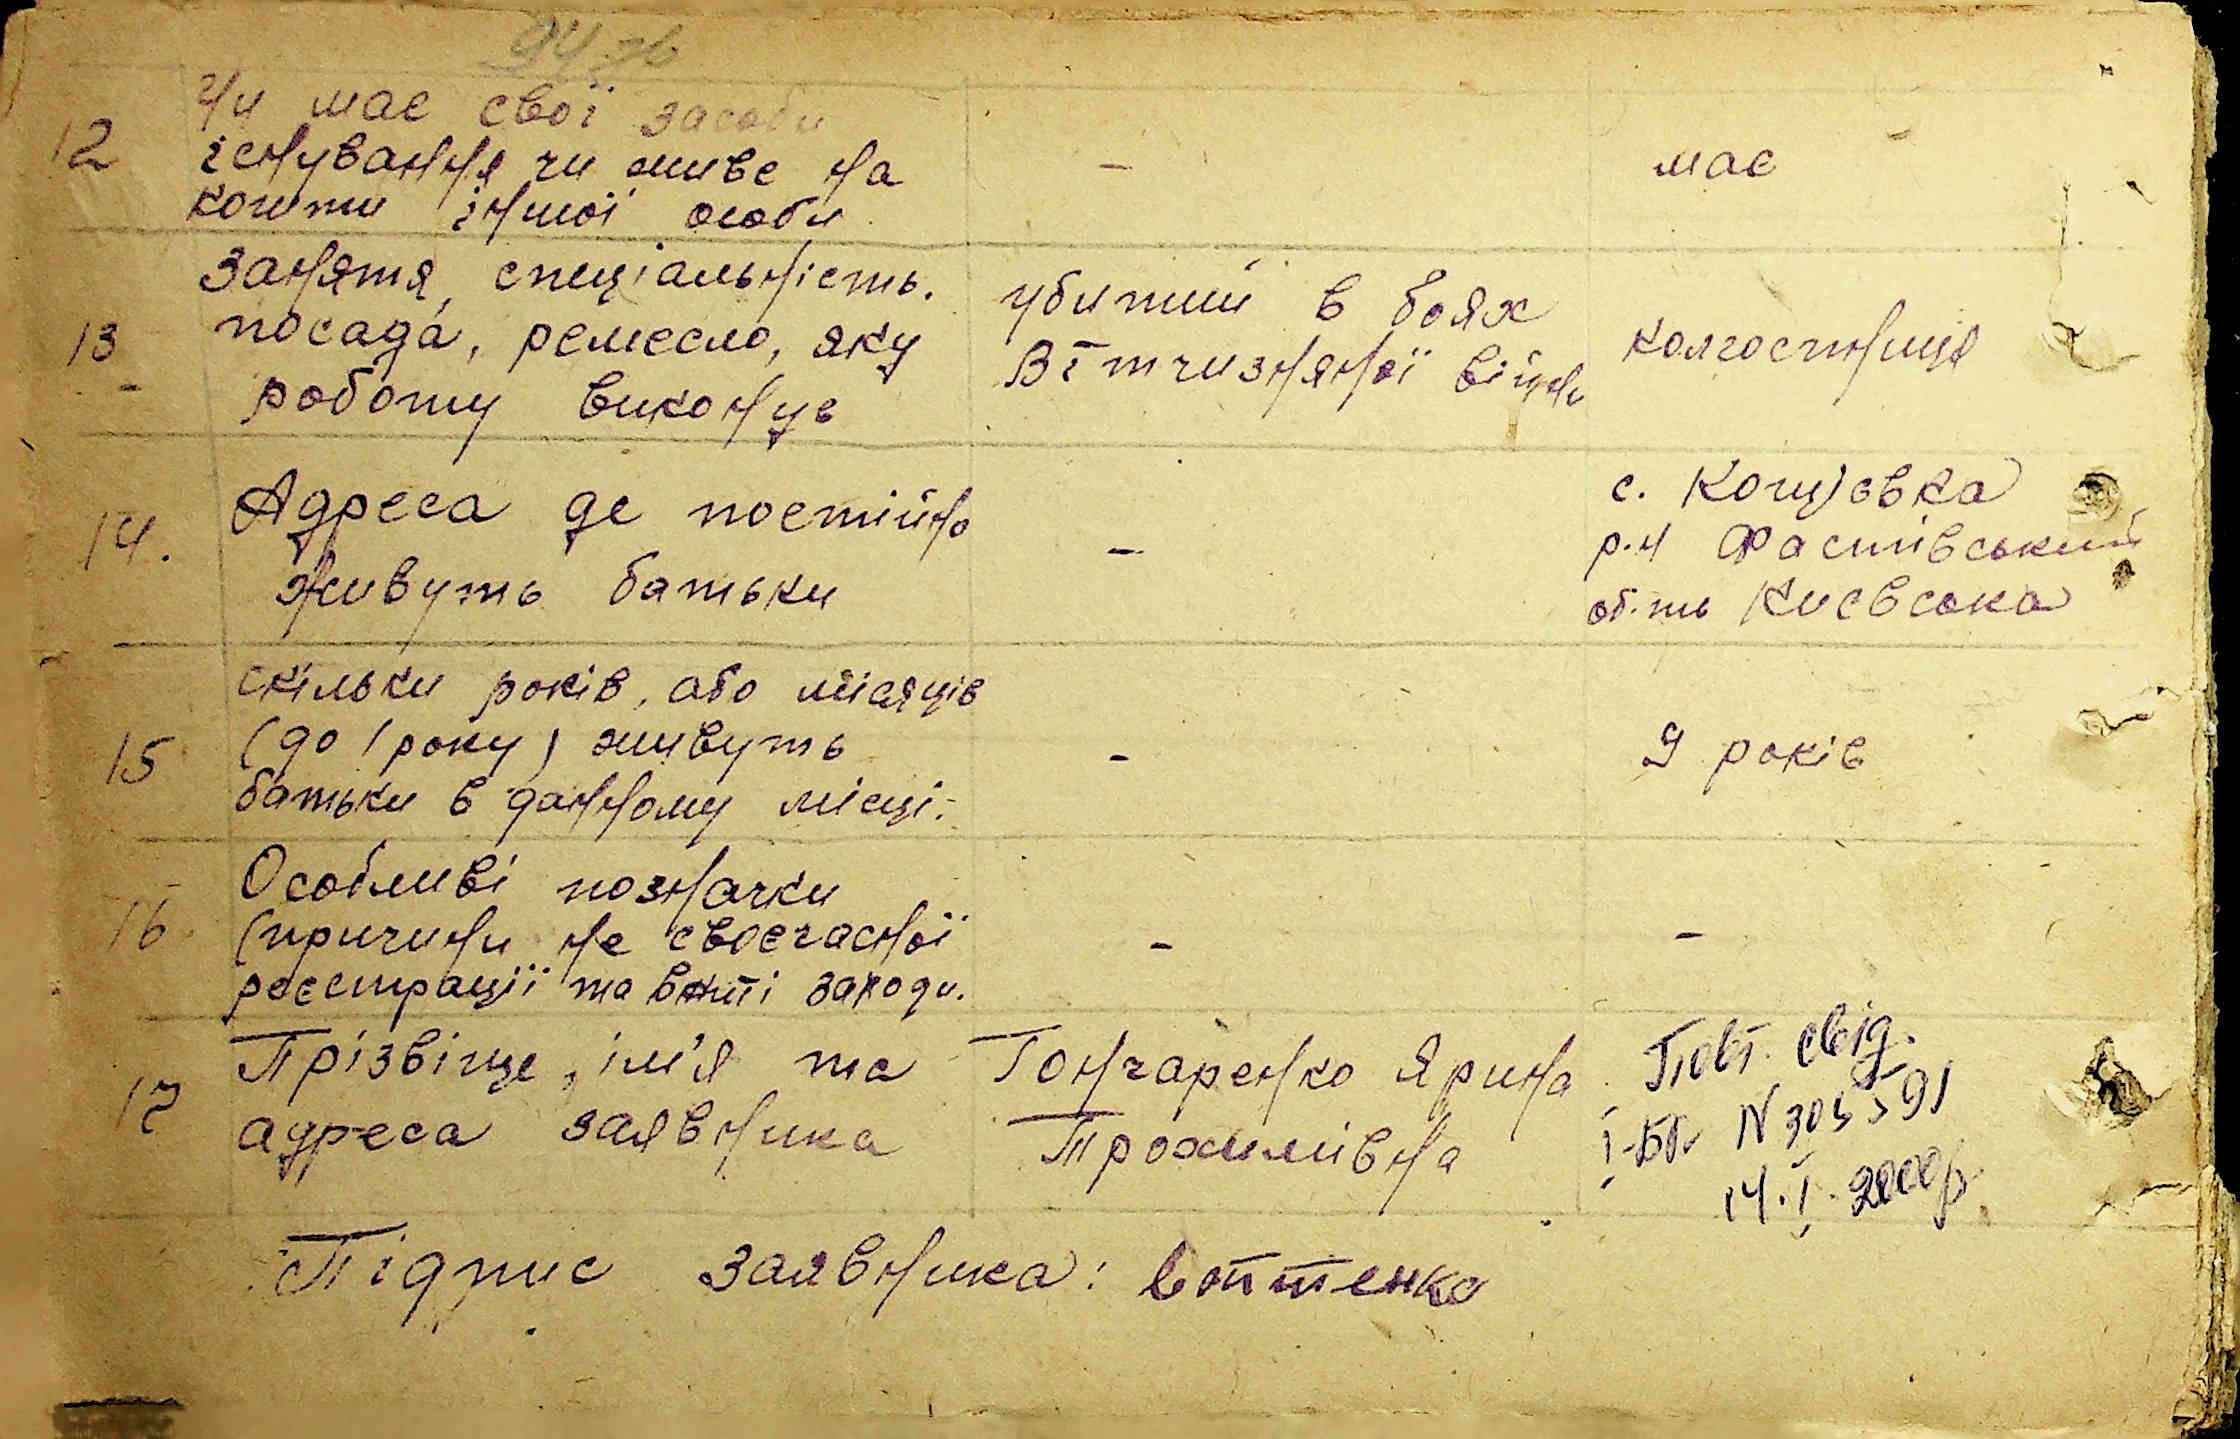 12 Чи має свої засоби
існування чи живе на
кошти іншої особи
-
має
13 Заняття, спеціальність.
посада, ремесло, яку
роботу виконує
убитий в боях
Вітчизняної війни
колгоспниця
14. Адреса де постійно
живуть батьки
-
с. Кощіевка
р.н Фастівський
об.ть Киевська
15 скільки років, або місяців
(до 1 року) живуть
батьки в данному місці.
-
9 років
16 Особливі позначки
(причини не своєчасної
реєстрації та вжиті заходи.
-
-
17 Прізвіще, ім'я та
адреса заявника
Гончаренко Ярина
Трохимівна
Повт. свід.
І-БК N
14.I.2000р.
Підпис заявника: